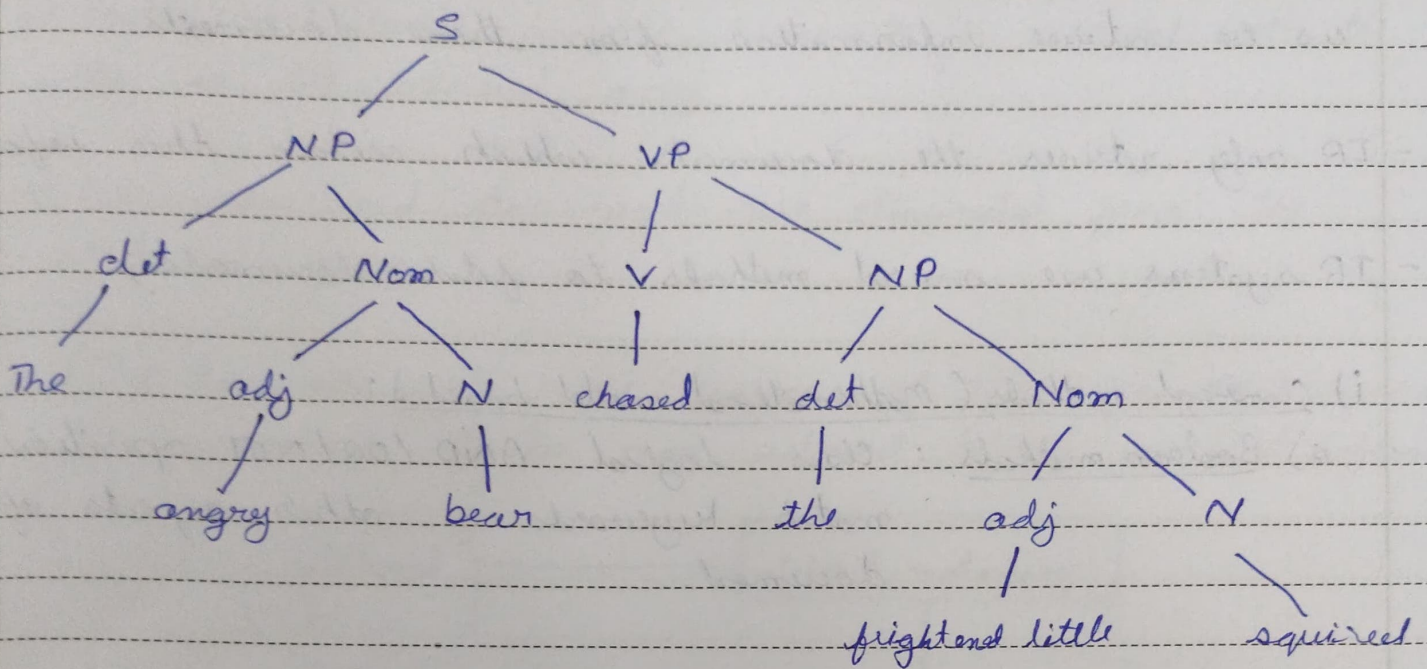 S
NP VP
det Nom V NP
The adj N chased det Nom
angry bear the adj N
frightend little squirrel